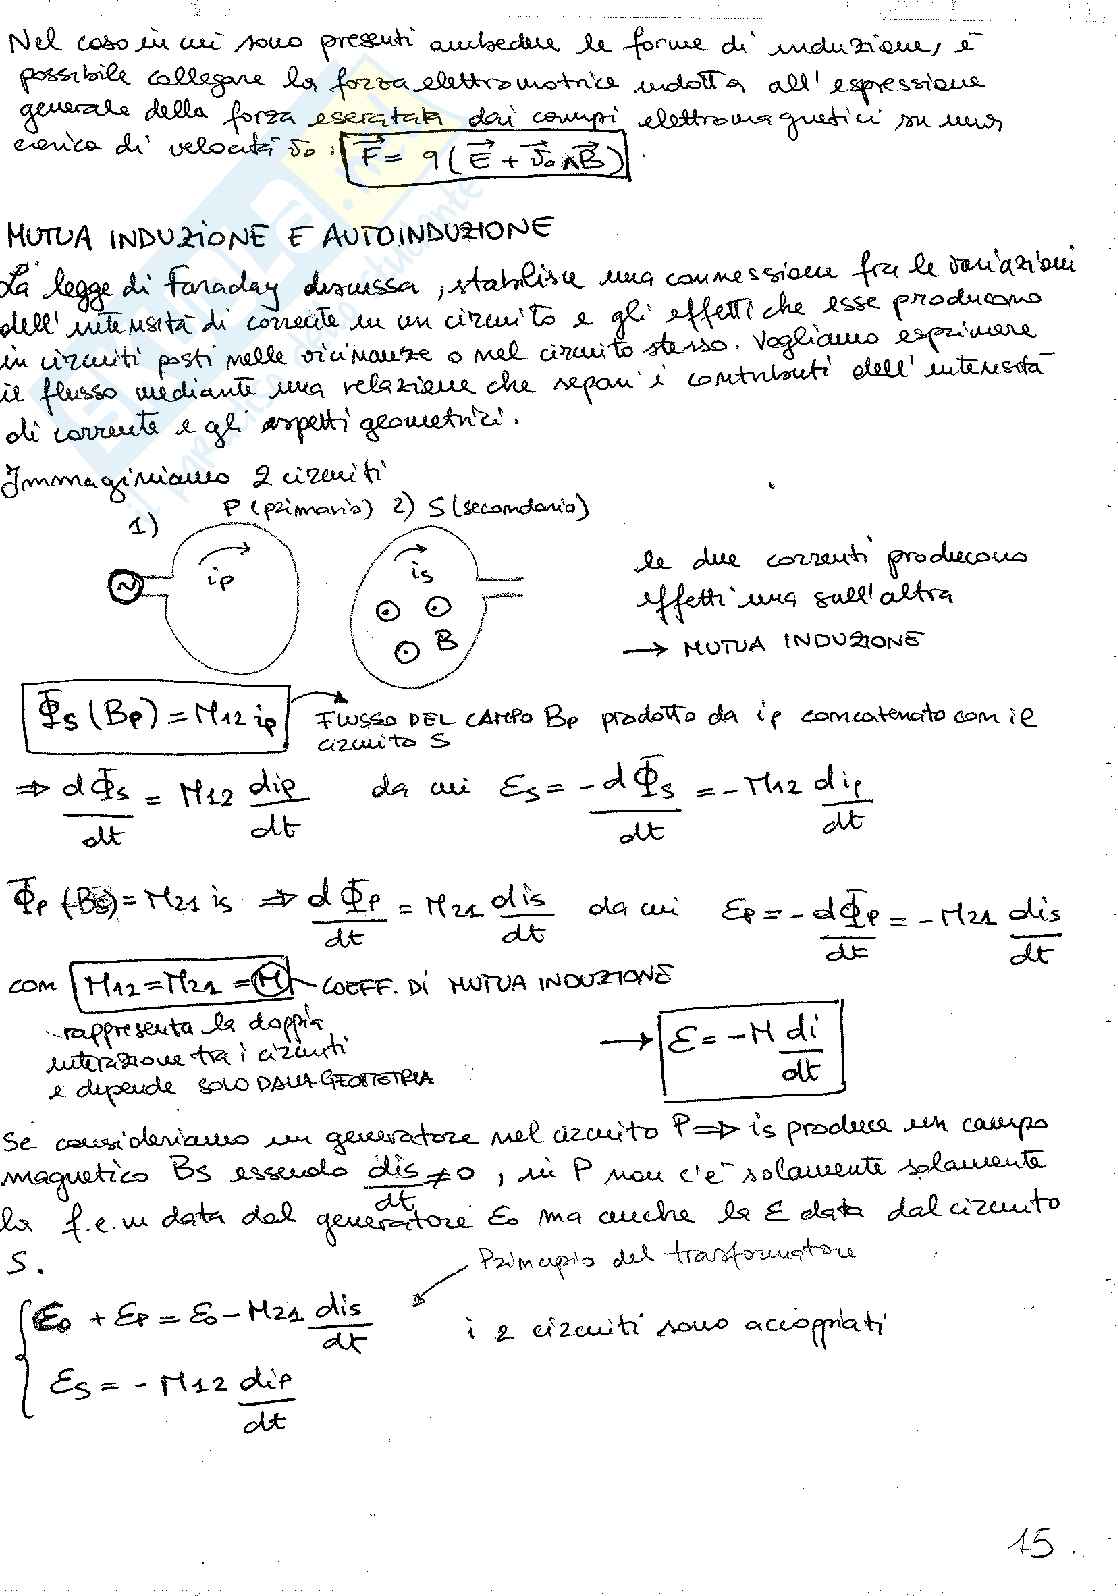 Nel caso in cui sono presenti ambedue le forme di induzione, è
possibile collegare la forza elettromotrice indotta all'espressione
generale della forza esercitata dai campi elettromagnetici su una
carica di velocità v₀: F⃗ = q(E⃗ + v⃗₀∧B⃗).
MUTUA INDUZIONE E AUTOINDUZIONE
La legge di Faraday discussa, stabilisce una connessione fra le variazioni
dell'intensità di corrente in un circuito e gli effetti che esse producono
in circuiti posti nelle vicinanze o nel circuito stesso. Vogliamo esprimere
il flusso mediante una relazione che separi i contributi dell'intensità
di corrente e gli aspetti geometrici.
Immaginiamo 2 circuiti
1) P (primario) 2) S (secondario)
ip is
B
le due correnti producono
effetti una sull'altra
→ MUTUA INDUZIONE
Φs(Bp) = M12 ip → FLUSSO DEL CAMPO Bp prodotto da ip concatenato con il
circuito S
⇒ dΦs/dt = M12 dip/dt da cui Ɛs = -dΦs/dt = -M12 dip/dt
Φp(Bs) = M21 is ⇒ dΦp/dt = M21 dis/dt da cui Ɛp = -dΦp/dt = -M21 dis/dt
com M12 = M21 = M COEFF. DI MUTUA INDUZIONE
rappresenta la doppia
interazione tra i circuiti
e dipende SOLO DALLA GEOMETRIA
→ Ɛ = -M di/dt
Se consideriamo un generatore nel circuito P ⇒ is produce un campo
magnetico Bs essendo dis/dt ≠ 0, in P non c'è solamente solamente
la f.e.m data dal generatore Ɛ₀ ma anche la Ɛ data dal circuito
S.
Principio del trasformatore
Ɛ₀ + Ɛp = Ɛ₀ - M21 dis/dt
i 2 circuiti sono accoppiati
Ɛs = - M12 dip/dt
15.